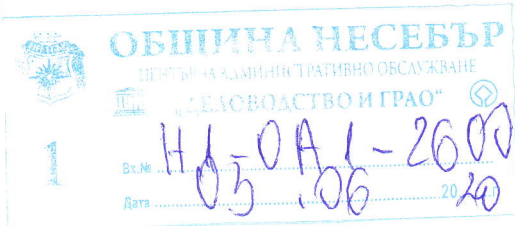 ОБЩИНА НЕСЕБЪР
ЦЕНТЪР ЗА АДМИНИСТРАТИВНО ОБСЛУЖВАНЕ
„ДЕЛОВОДСТВО И ГРАО“
1
Вх.№ Н1-ОА1-2600
Дата 05.06 2020 г.